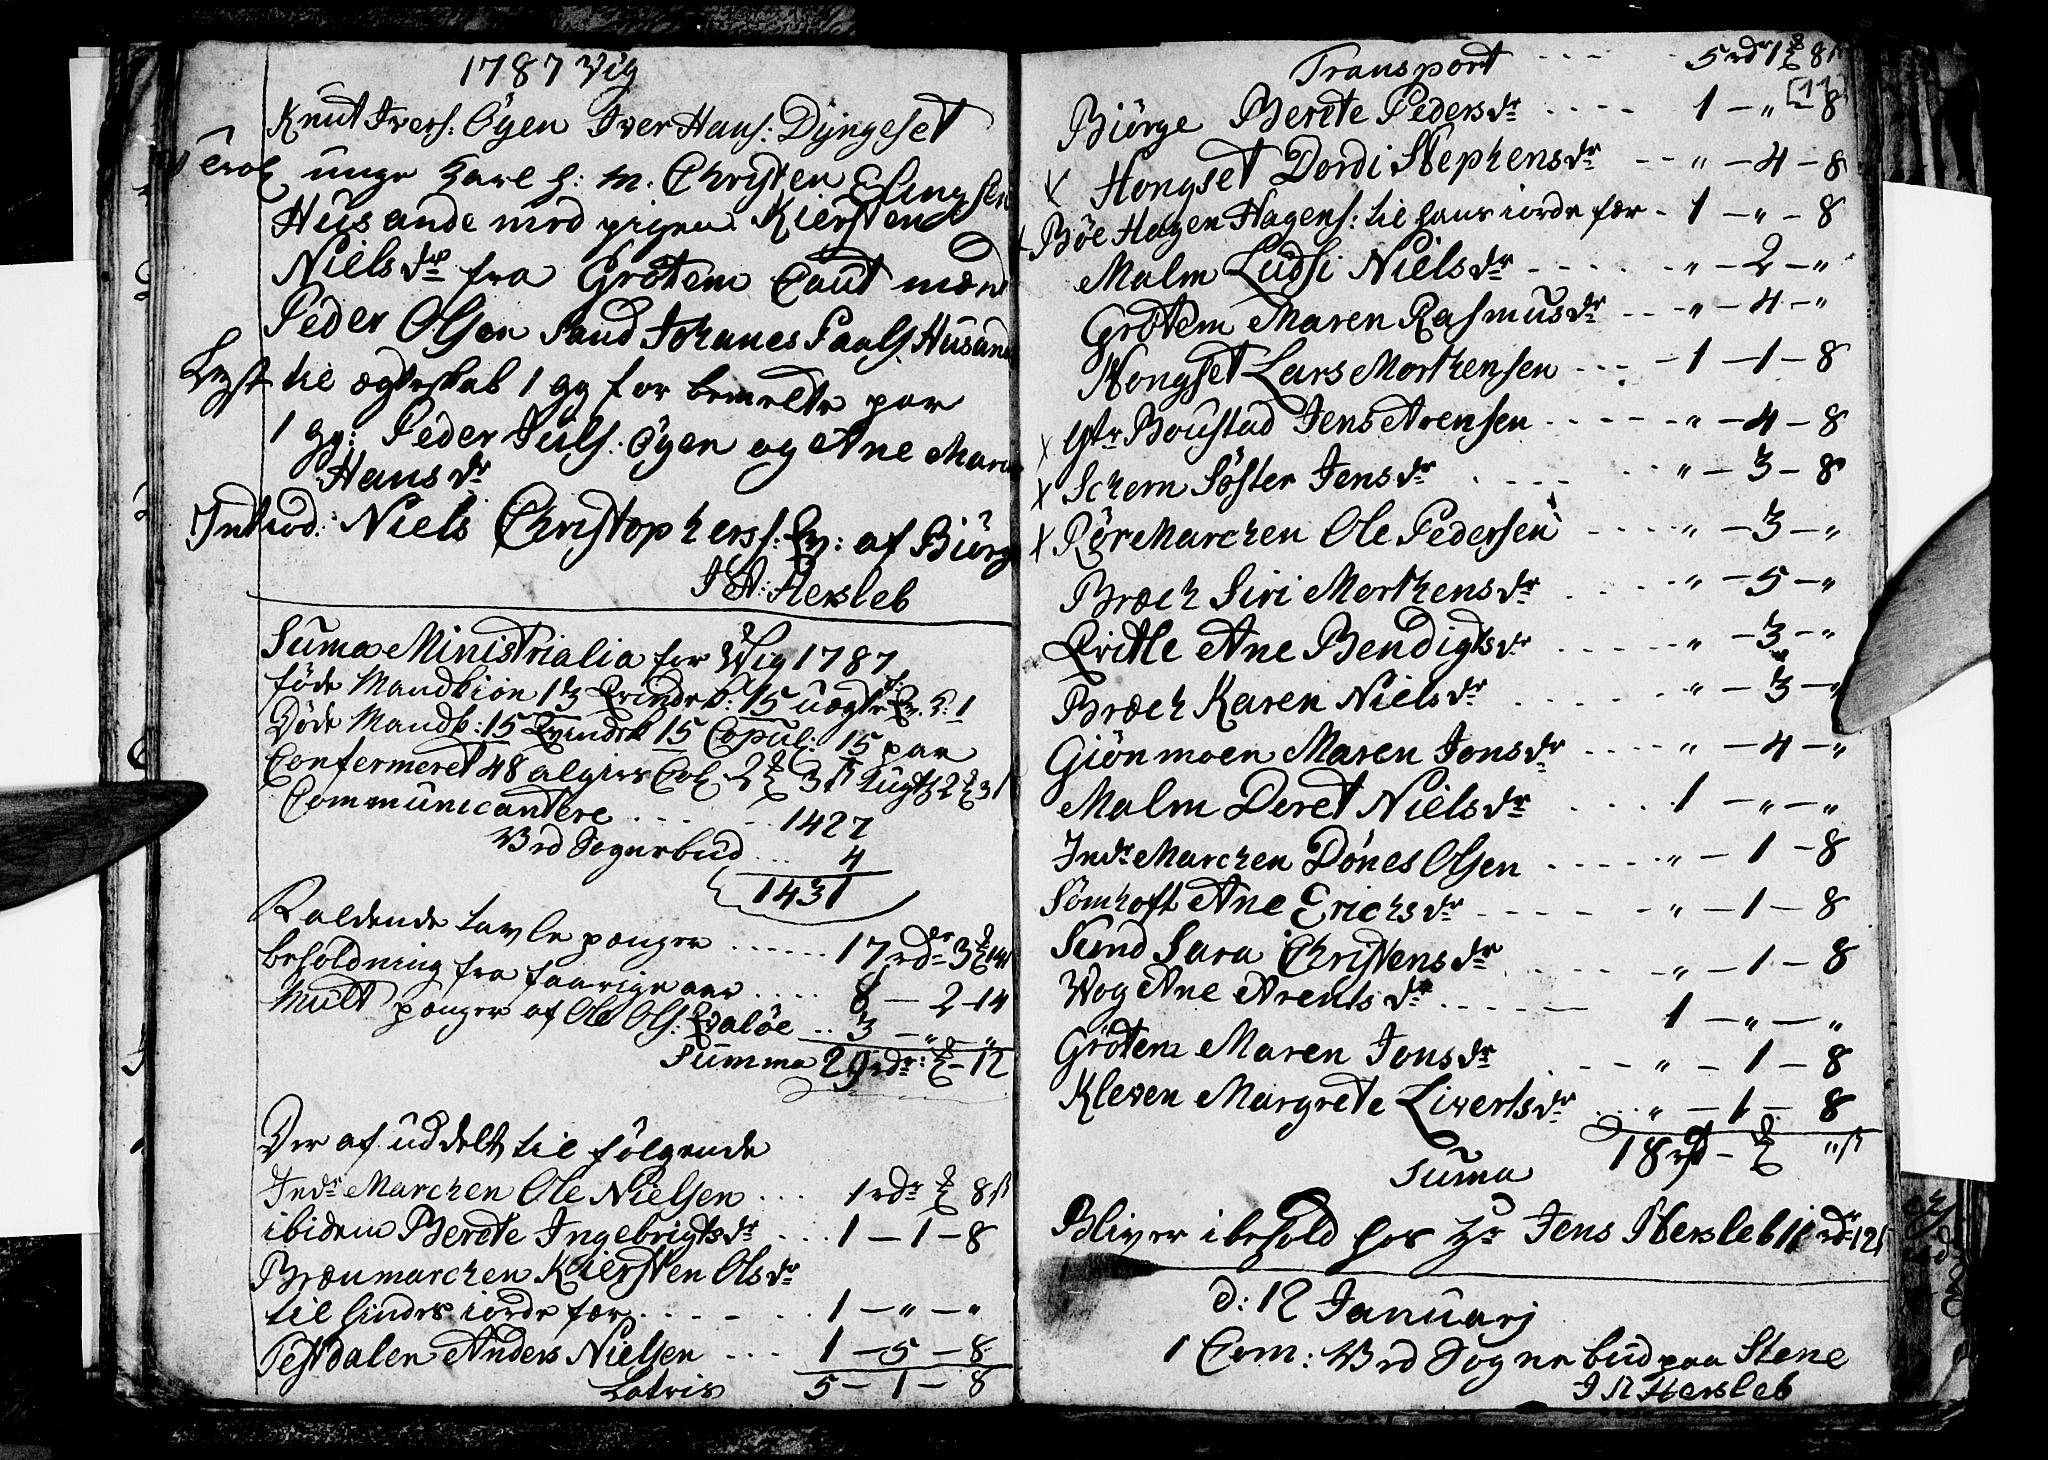 1787 Vig
Knut Ivers: Öyen Iver Hans: Dÿngeset
Trol: unge Karl h: m: Christen Elingsen
Husande med pigen Kiersten
Niels dr fra Grötem Caut mænd
Peder Olsen Sand Johanes Paals Husand
Lyst til ægteskab 1 gg for bemeldte par
1 gg: Peder Juls: Öyen og Ane Maria
Hans dr
Introd: Niels Christophers: Qv: af Biörg
J A: Hersleb
Suma Ministrialia for Wig 1787
föde Mandkiön 13 Qvindek: 15 uægte Qv. k: 1
Döde Mandk: 15 Qvindek 15 Copul: 15 par
Confermeret 48
Communicantere 1427
Ved Sognebud 4
1431
Faldende tavle pænger 17 rdr 3
beholdning fra forrige aar 8 - 2 - 14
Mult pænger af Ole Ols: Qvalöe 3 - " - "
Summa 29 rdr: - 12
Der af uddelt til fölgende
Indr Marchen Ole Nielsen 1 rdr 8 s
ibidem Berete Ingebrigts dr 1 - 1 - 8
Bræumarchen Kiersten Ols dr
til hindes iorde fær 1 - " - "
Testdalen Anders Nielsen 1 - 5 - 8
Latris 5 - 1 - 8
Transport 5 rdr 1 8 s
[11]
Biörge Berete Peders dr 1 - " - 8
x Hongset Dordi Stephens dr " - 4 - 8
x Böe Hagen Hagens: til hans iorde fær - 1 - " - 8
Malm Ludsi Niels dr " - 2 - "
Grötem Maren Rasmus dr " - 4 - "
Hongset Lars Morthensen 1 - 1 - 8
x Ytr Boustad Jens Arensen " - 4 - 8
x Schern Söster Jens dr " - 3 - 8
x Rör Marchen Ole Pedersen " - 3 - "
Bræch Siri Morthens dr " - 5 - "
Qvitle Ane Bendigts dr " - 3 - "
Bræch Karen Niels dr " - 3 - "
Giönmoen Maren Jons dr " - 4 - "
Malm Deret Niels dr 1 - " - "
Indr Marchen Dönes Olsen " - 1 - 8
Sömhoft Ane Erichs dr " - 1 - 8
Sund Sara Christens dr " - 1 - 8
Wog Ane Arents dr 1 - " - "
Grötem Maren Jons dr " - 1 - 8
Kleven Margrete Liverts dr " - 1 - 8
Suma 18 rd - " s
Bliver i behold hos Hr Jens Hersleb 11 rdr 12 s
d: 12 Januarj
1 Com: Ved Sogne bud paa Stene
J A Hersleb